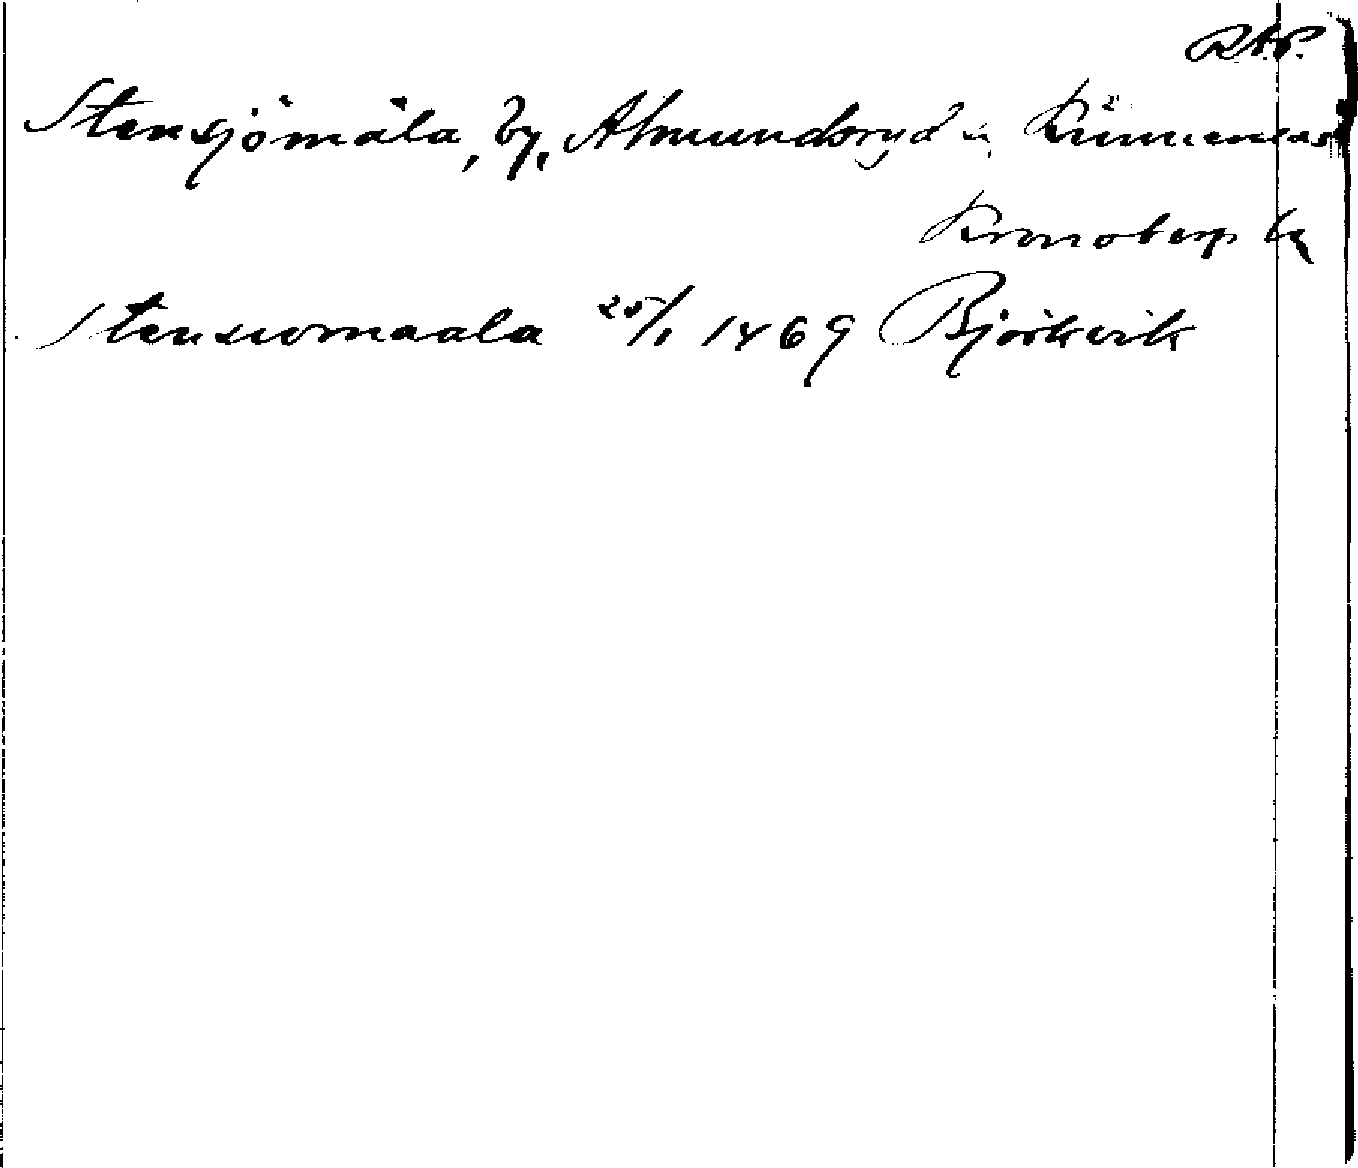 RAP.
Stensjömåla, by, Almundsryd s. Kinnevalds
Kronobergs l.
Stensiomaala 25/1 1469 Björkvik